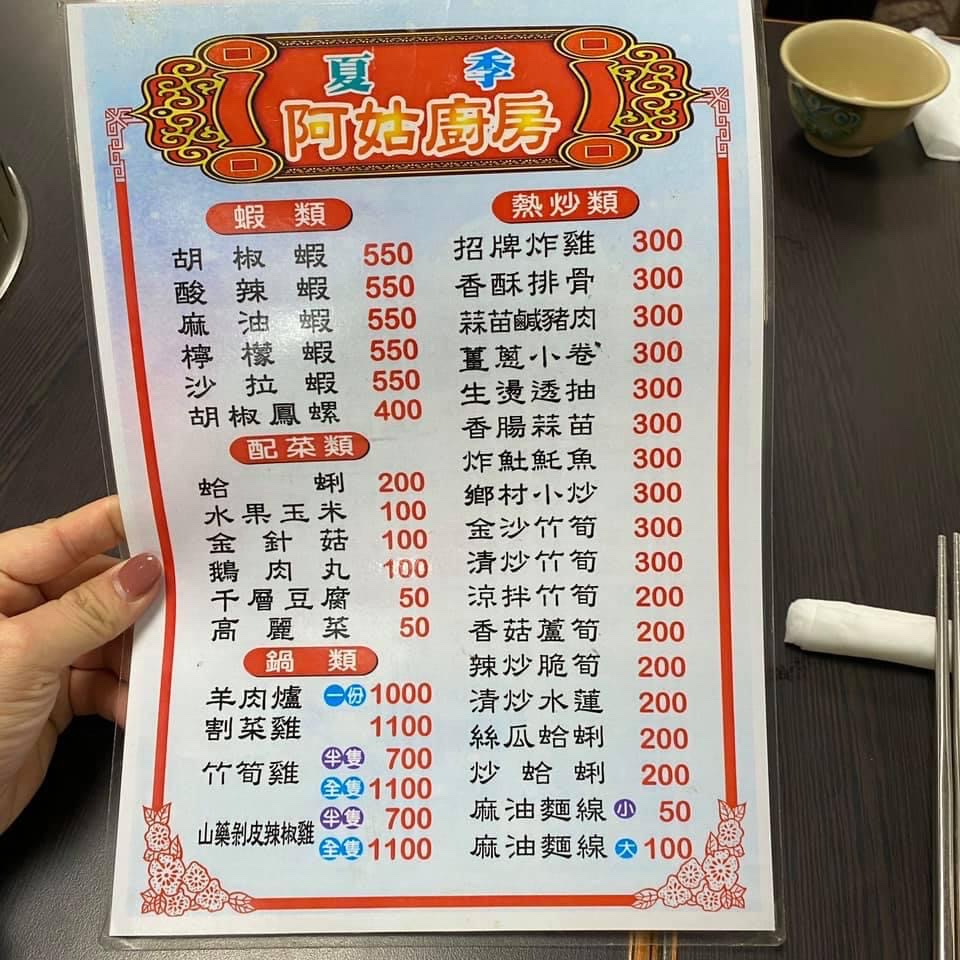 夏季
阿姑廚房
蝦類
胡椒蝦 550
酸辣蝦 550
麻油蝦 550
檸檬蝦 550
沙拉蝦 550
胡椒鳳螺 400
配菜類
蛤蜊 200
水果玉米 100
金針菇 100
鵝肉丸 100
千層豆腐 50
高麗菜 50
鍋類
羊肉爐 一份 1000
割菜雞 1100
竹筍雞 半隻 700
全隻 1100
山藥剝皮辣椒雞 半隻 700
全隻 1100
熱炒類
招牌炸雞 300
香酥排骨 300
蒜苗鹹豬肉 300
薑蔥小卷 300
生燙透抽 300
香腸蒜苗 300
炸魠魠魚 300
鄉村小炒 300
金沙竹筍 300
清炒竹筍 300
涼拌竹筍 200
香菇蘆筍 200
辣炒脆筍 200
清炒水蓮 200
絲瓜蛤蜊 200
炒蛤蜊 200
麻油麵線 小 50
麻油麵線 大 100